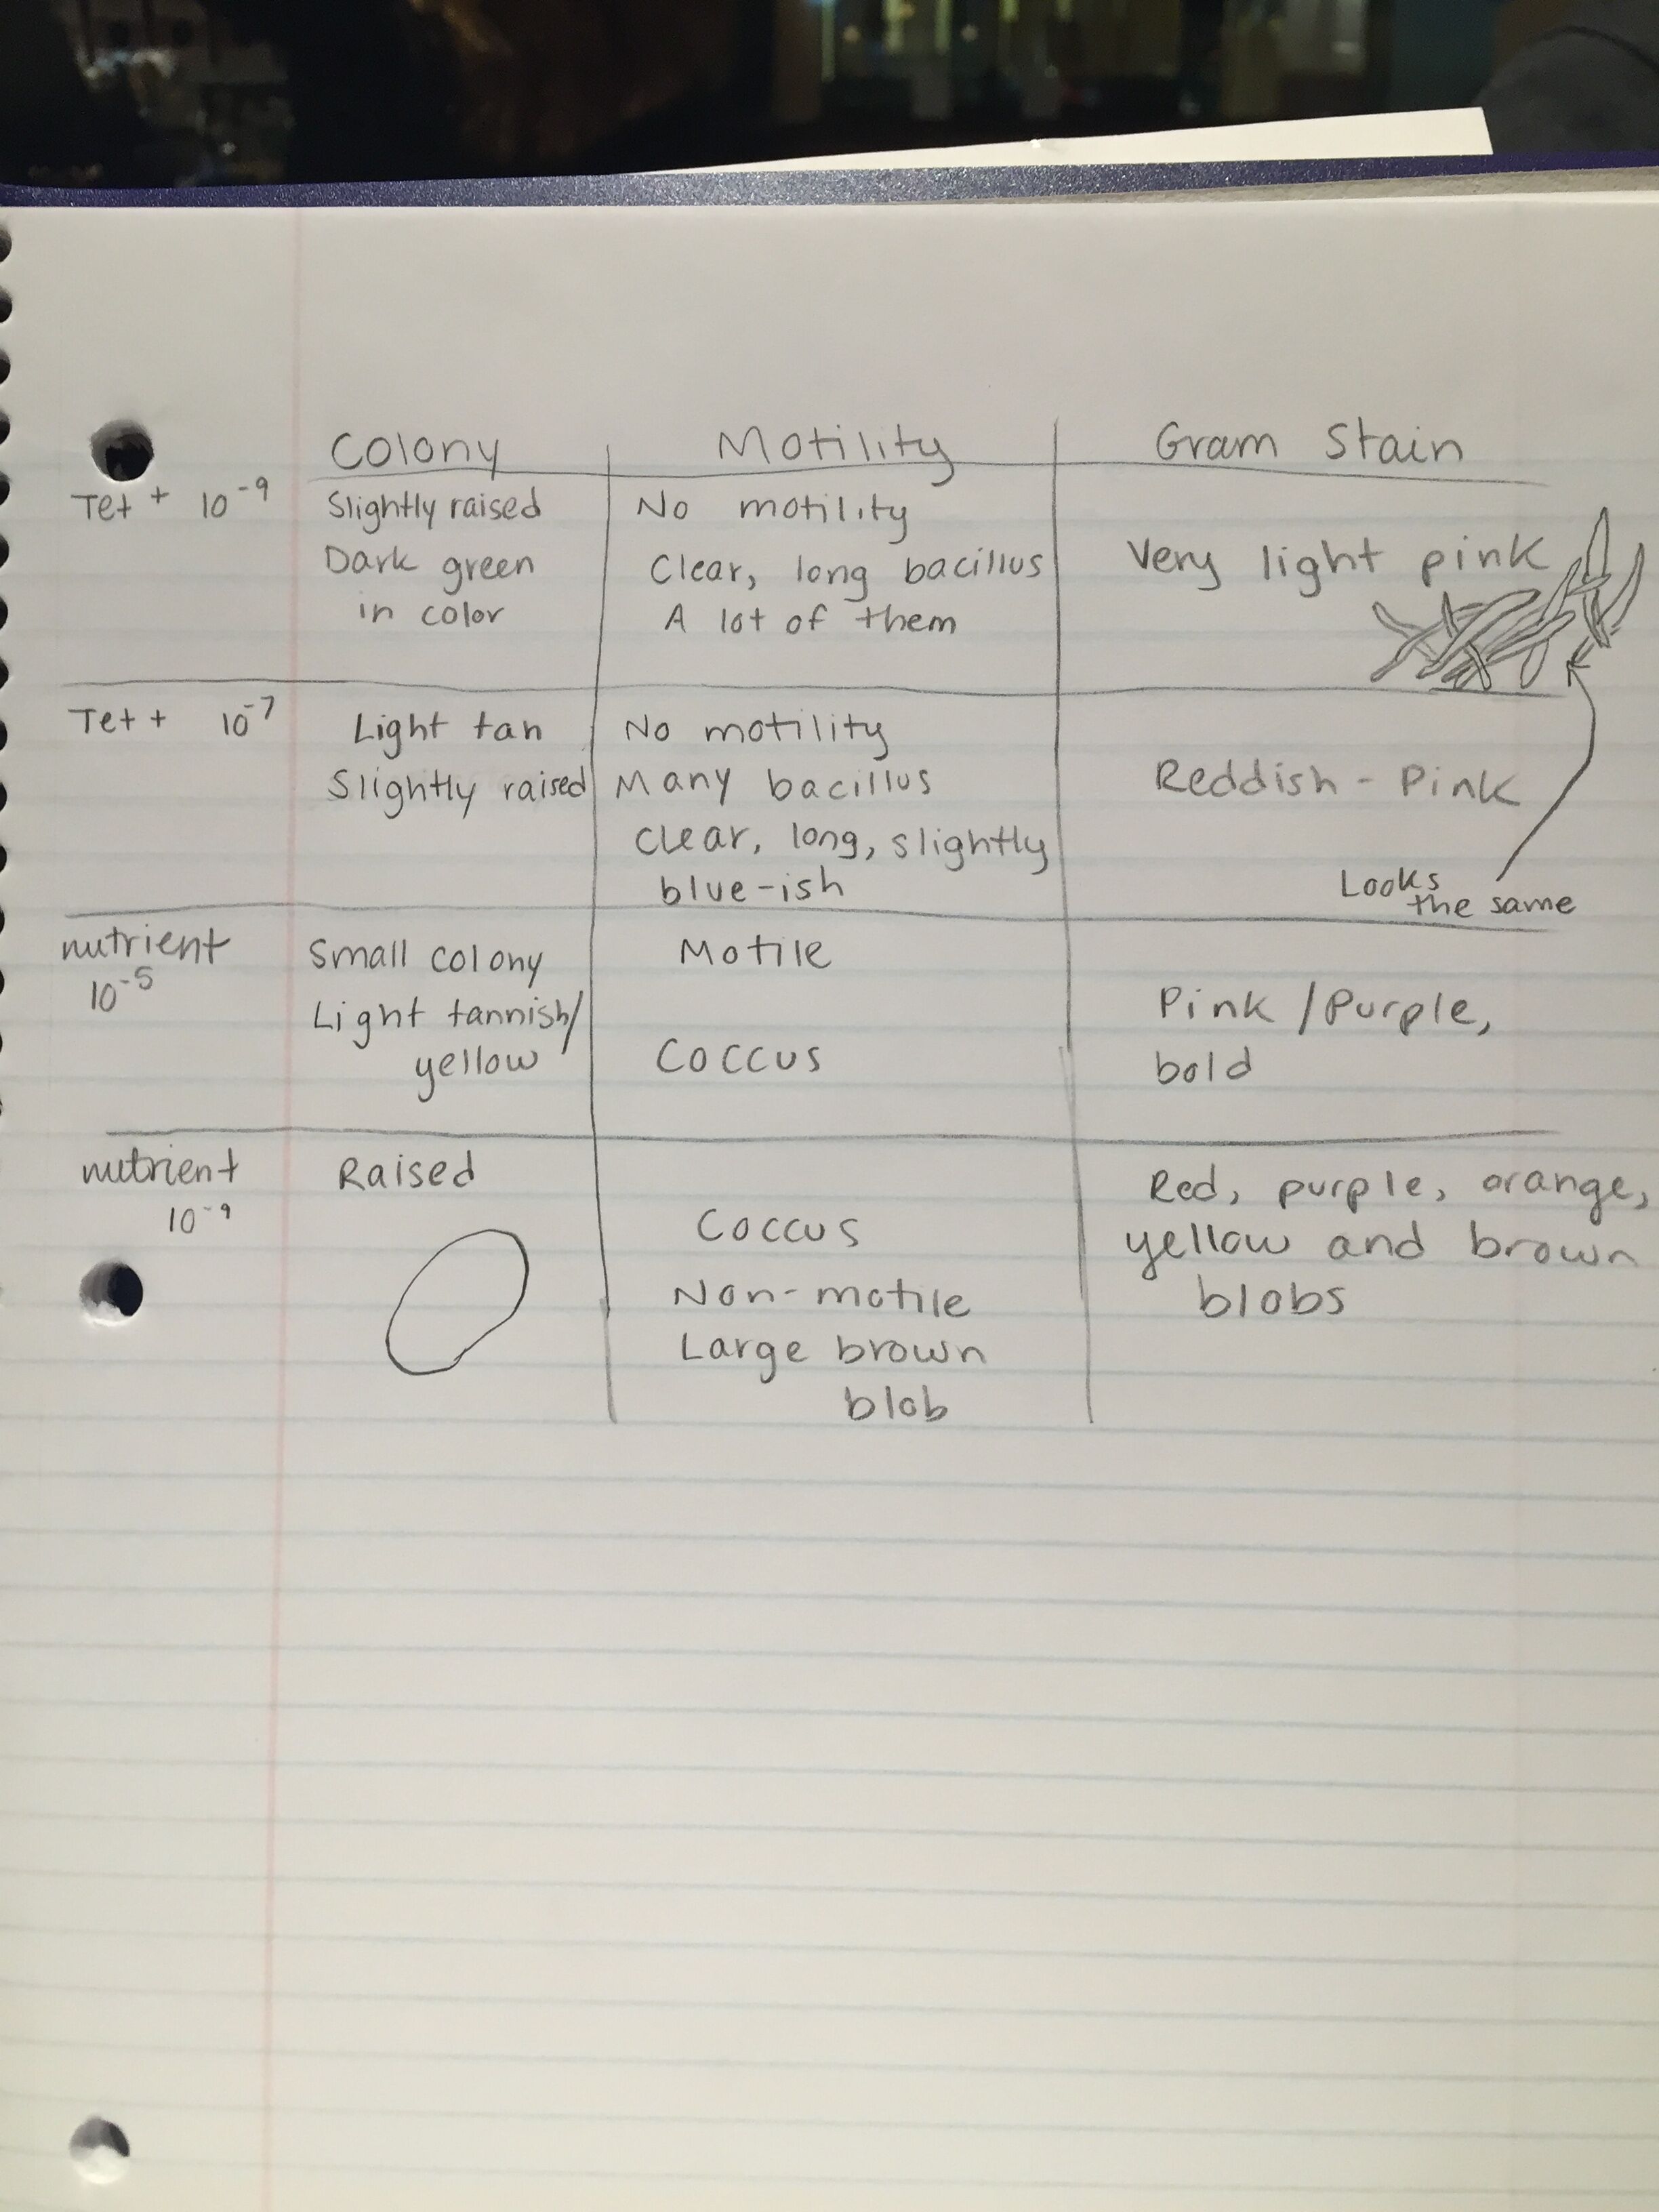 Colony Motility Gram Stain
Tet + 10⁻⁹
Slightly raised
Dark green
in color
No motility
Clear, long bacillus
A lot of them
Very light pink
Tet + 10⁻⁷
Light tan
Slightly raised
No motility
Many bacillus
clear, long, slightly
blue-ish
Reddish - Pink
Looks
the same
nutrient
10⁻⁵
Small colony
Light tannish/
yellow
Motile
Coccus
Pink / Purple,
bold
nutrient
10⁻⁹
Raised
Coccus
Non-motile
Large brown
blob
Red, purple, orange,
yellow and brown
blobs